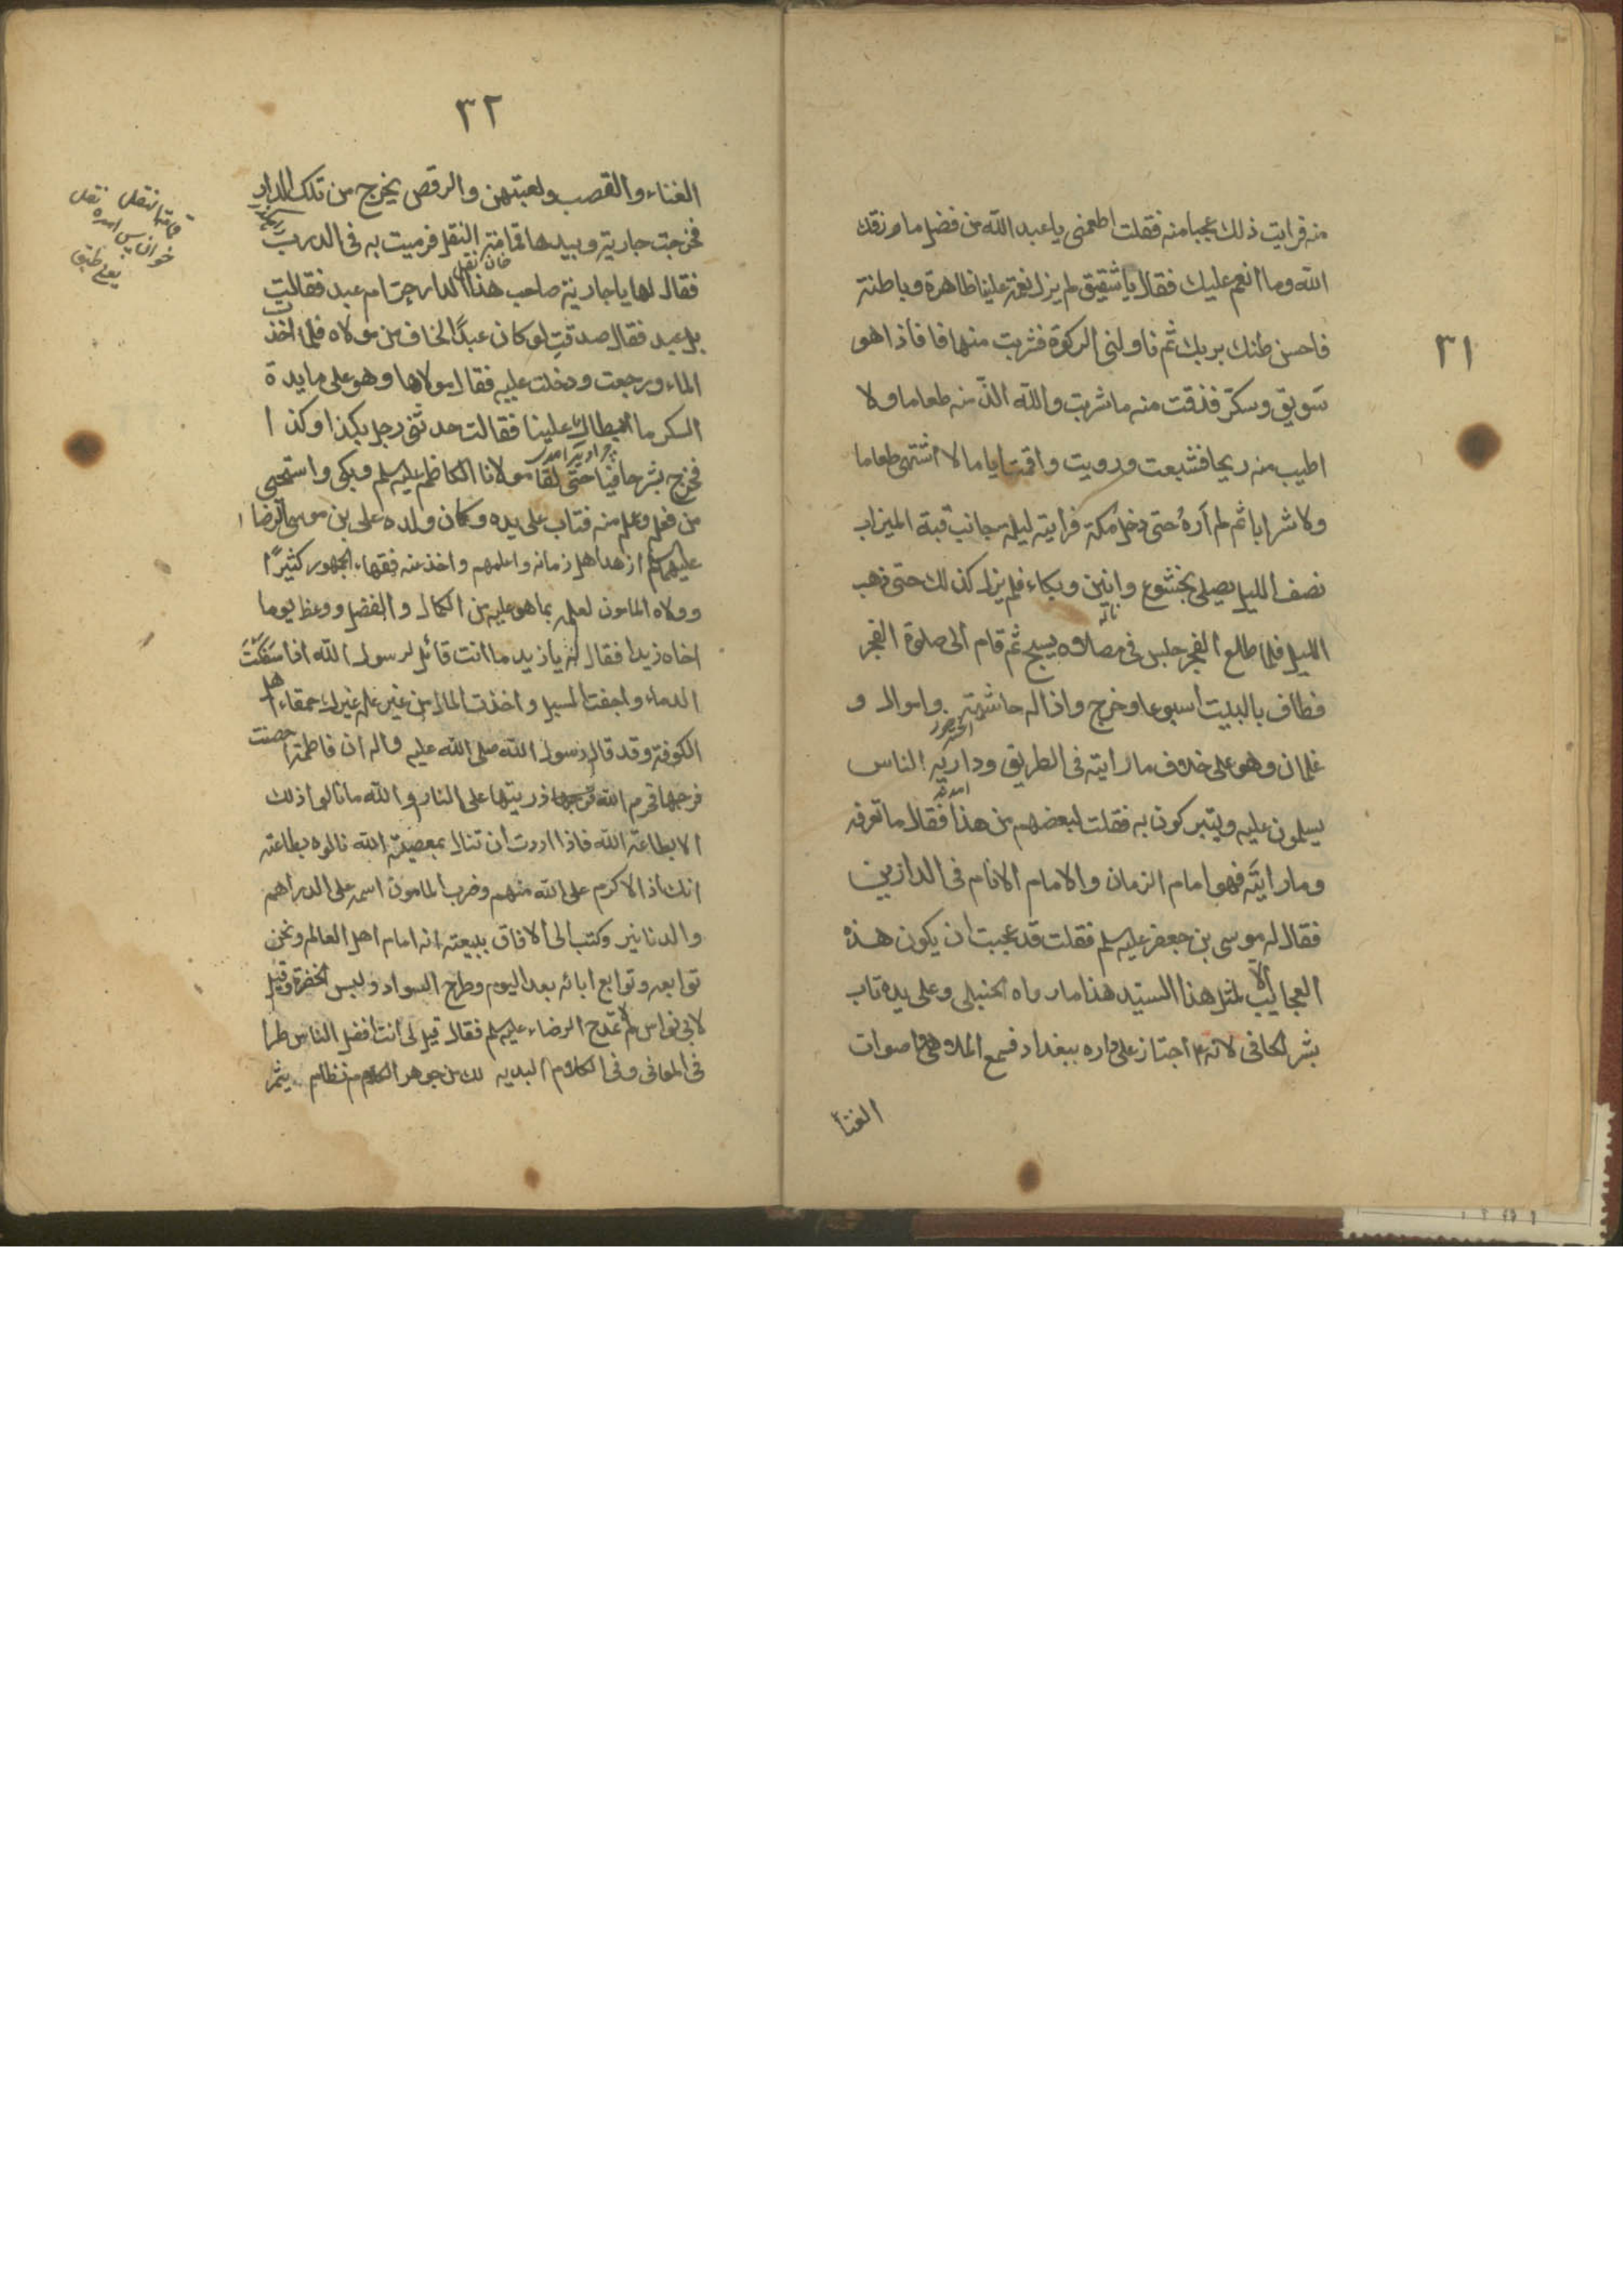 ٣١
منه فرايت ذلك عجبا منه فقلت اطعمنى يا عبد الله من فضل ما رزقك
الله وما انعم عليك فقال يا شقيق لم يزل نعمة علينا ظاهرة وباطنة
فاحسن ظنك بربك ثم ناولنى الركوة فشربت منها فاذا هو
سَويق وسكّر فذقت منه ما شربت والله الذّ منه طعاما ولا
اطيب منه ريحا فشبعت ورويت واقمت اياما لا اشتهى طعاما
ولا شرابا ثم لم آرَهُ حتى دخل مكة فرايته ليلة بجانب قبة الميزاب
نصف الليل يصلى بخشوع وانين وبكاء فلم يزل كذلك حتى ذهب
ناله
الليل فلما طلع الفجر جلس فى مصلاه يسبح ثم قام الى صلوة الفجر
فطاف بالبيت اسبوعا وخرج واذا له حاشية واموال و
غلمان وهو على خلاف ما رايته فى الطريق ودار به الناس
يسلمون عليه ويتبركون به فقلت لبعضهم من هذا فقال ما تعرفه
وما رايتَه فهو امام الزمان والامام الانام فى الدارين
فقال له موسى بن جعفر عليه سلم فقلت قد عجبت ان يكون هذه
العجايب الا لمثل هذا السيّد هذا ما رواه الحنبلى وعلى يده تاب
بشر الحافى لانه ع اجتاز على داره ببغداد فسمع الملاهى واصوات
الغنآ
٣٢
الغناء والقصب ولعبتهن والرقص يخرج من تلك الدار
فخرجت جارية وبيدها قمامة النقل فرميت به فى الدرب
خان نقل
فقال لها يا جارية صاحب هذا الدار حرّ ام عبد فقالت
بل عبد فقال صدقتِ لو كان عبدًا لخاف من مولاه فلما اخذت
الماء ورجعت ودخلت عليه فقال مولاها وهو على مايدة
السكر ما ابطاكِ علينا فقالت حدثنى رجل بكذا وكذا
فخرج بشر حافيا حتى لقا مولانا الكاظم عليه سلم وبكى واستحيى
من فعله وعلم منه فتاب على يده وكان ولده على بن موسى الرضا
عليهم سلم ازهد اهل زمانه واعلمهم واخذ عنه فقهاء الجمهور كثيرًا
وولاه المامون لعلمه بما هو عليه من الكمال والفضل ووعظ يوما
اخاه زيدا فقال له يا زيد ما انت قائل لرسول الله اذا سَفكتَ
الدماء واخفت السبيل واخذت المال من غير حله غيرك حمقاء اهل
الكوفة وقد قال رسول الله صلى الله عليه واله ان فاطمة احصنت
فرجها فحرم الله ذريتها على النار والله ما نالوا ذلك
الا بطاعة الله فاذا اردت ان تنال بمعصية الله نالوه بطاعته
انك اذا لاكرم على الله منهم وضرب المامون اسمه على الدراهم
والدنانير وكتب الى الافاق ببيعته انه امام اهل العالم ونحن
توابعه وتوابع ابائه بعد اليوم وطرح السواد ولبس الخضرة وقيل
لابى نواس لم لا تمدح الرضاء عليه سلم فقال قيل لى انت افضل الناس طرا
فى المعانى وفى الكلام البديه لك من جوهر الكلام نظام يثمر
قمامة النقل نقل
خوان پس امده
يعنى طبق